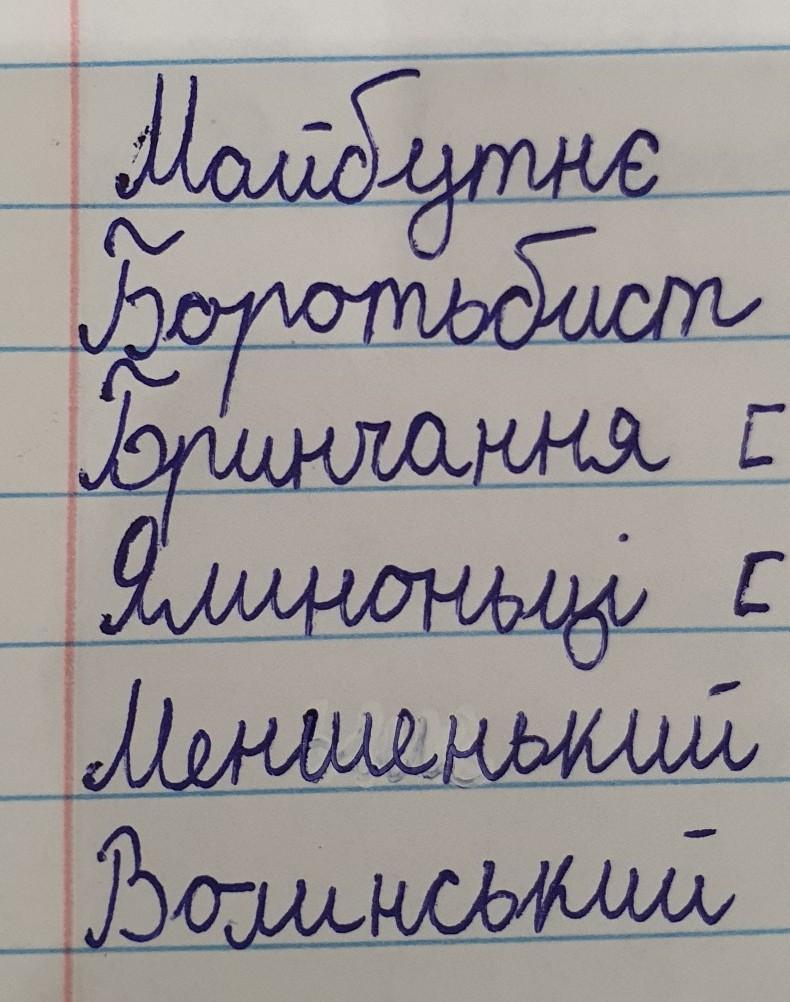 Майбутнє
Боротьбист
Бринчання [
Ялиноньці [
Меншенький
Волинський